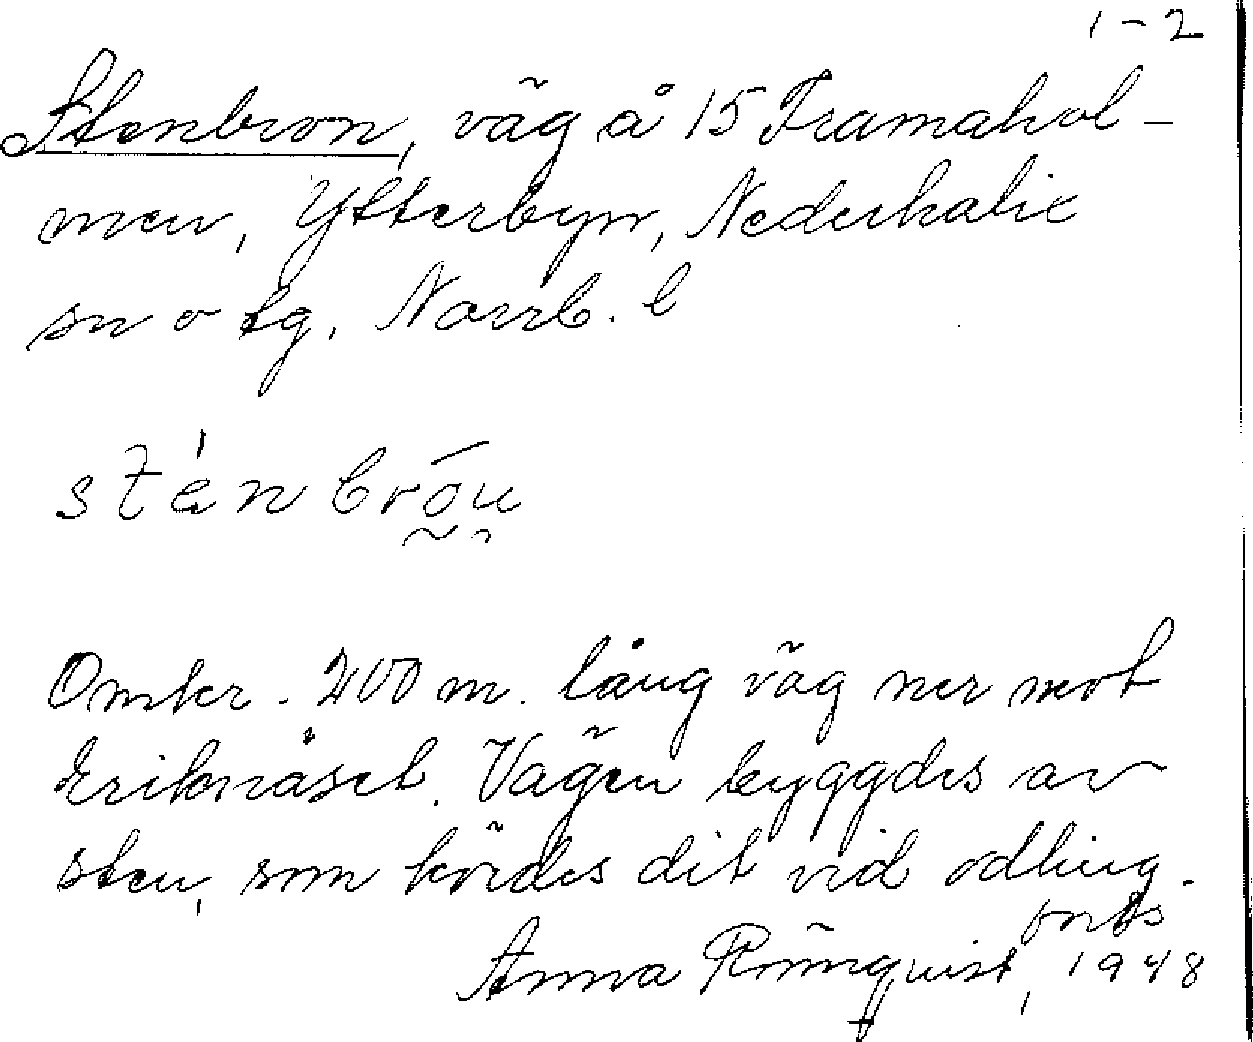 1-2
Stenbron, väg å 15 Framahol-
men, Ytterbyn, Nederkalix
sn o tg. Norrb. l
sténbrōu
Omkr. 200 m. lång väg ner mot
Eriknäset. Vägen byggdes av
sten, som kördes dit vid odling.
forts
Anna Rönnquist, 1948